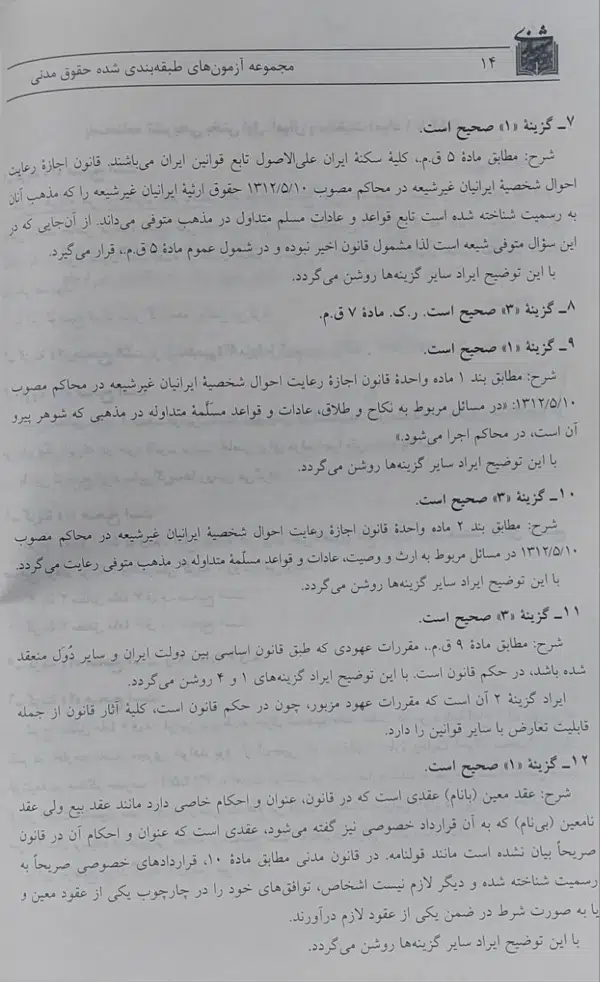 ۱۴
مجموعه آزمون‌های طبقه‌بندی شده حقوق مدنی
۷ـ گزینهٔ «۱» صحیح است.
شرح: مطابق مادهٔ ۵ ق.م.، کلیهٔ سکنهٔ ایران علی‌الاصول تابع قوانین ایران می‌باشند. قانون اجازهٔ رعایت
احوال شخصیهٔ ایرانیان غیرشیعه در محاکم مصوب ۱۳۱۲/۵/۱۰ حقوق ارثیهٔ ایرانیان غیرشیعه را که مذهب آنان
به رسمیت شناخته شده است تابع قواعد و عادات مسلم متداول در مذهب متوفی می‌داند. از آن‌جایی که در
این سؤال متوفی شیعه است لذا مشمول قانون اخیر نبوده و در شمول عموم مادهٔ ۵ ق.م.، قرار می‌گیرد.
با این توضیح ایراد سایر گزینه‌ها روشن می‌گردد.
۸ـ گزینهٔ «۳» صحیح است. ر.ک. مادهٔ ۷ ق.م.
۹ـ گزینهٔ «۱» صحیح است.
شرح: مطابق بند ۱ ماده واحدهٔ قانون اجازهٔ رعایت احوال شخصیهٔ ایرانیان غیرشیعه در محاکم مصوب
۱۳۱۲/۵/۱۰: «در مسائل مربوط به نکاح و طلاق، عادات و قواعد مسلّمهٔ متداوله در مذهبی که شوهر پیرو
آن است، در محاکم اجرا می‌شود.»
با این توضیح ایراد سایر گزینه‌ها روشن می‌گردد.
۱۰ـ گزینهٔ «۳» صحیح است.
شرح: مطابق بند ۲ ماده واحدهٔ قانون اجازهٔ رعایت احوال شخصیهٔ ایرانیان غیرشیعه در محاکم مصوب
۱۳۱۲/۵/۱۰ در مسائل مربوط به ارث و وصیت، عادات و قواعد مسلّمهٔ متداوله در مذهب متوفی رعایت می‌گردد.
با این توضیح ایراد سایر گزینه‌ها روشن می‌گردد.
۱۱ـ گزینهٔ «۳» صحیح است.
شرح: مطابق مادهٔ ۹ ق.م.، مقررات عهودی که طبق قانون اساسی بین دولت ایران و سایر دُوَل منعقد
شده باشد، در حکم قانون است. با این توضیح ایراد گزینه‌های ۱ و ۴ روشن می‌گردد.
ایراد گزینهٔ ۲ آن است که مقررات عهود مزبور، چون در حکم قانون است، کلیهٔ آثار قانون از جمله
قابلیت تعارض با سایر قوانین را دارد.
۱۲ـ گزینهٔ «۱» صحیح است.
شرح: عقد معین (بانام) عقدی است که در قانون، عنوان و احکام خاصی دارد مانند عقد بیع ولی عقد
نامعین (بی‌نام) که به آن قرارداد خصوصی نیز گفته می‌شود، عقدی است که عنوان و احکام آن در قانون
صریحاً بیان نشده است مانند قولنامه. در قانون مدنی مطابق مادهٔ ۱۰، قراردادهای خصوصی صریحاً به
رسمیت شناخته شده و دیگر لازم نیست اشخاص، توافق‌های خود را در چارچوب یکی از عقود معین و
یا به صورت شرط در ضمن یکی از عقود لازم درآورند.
با این توضیح ایراد سایر گزینه‌ها روشن می‌گردد.